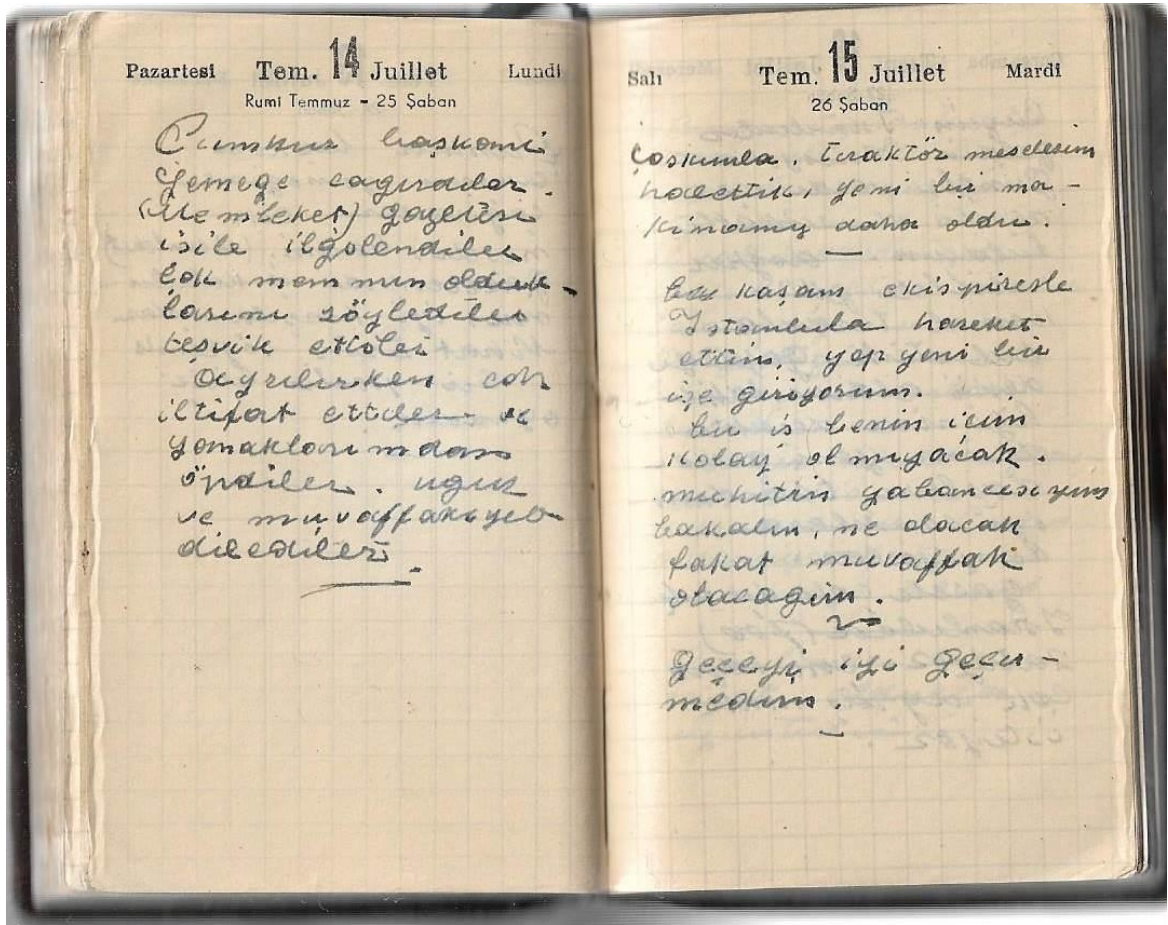 Pazartesi Tem. 14 Juillet Lundi
Rumi Temmuz - 25 Şaban
Cumhur başkanı
Yemeğe cagırdılar.
(Memleket) gazetesi
işile ilgölendiler
çok memnun olduk-
larını söylediler
teşvik ettiler
ayrılırken çok
iltifat ettiler ve
yanaklarımdan
öpdiler. uğur
ve muvaffakıyet
dilediler.
Salı Tem. 15 Juillet Mardi
26 Şaban
Çoskunla. tıraktör meselesini
halettik, yeni bir ma-
kinamız daha oldu.
bu kaşam ekispiresle
Istanbula hareket
ettim, yep yeni bir
işe giriyorum.
bu iş benim icin
kolay olmıyacak.
muhitin yabancısıyım
bakalım, ne olacak
fakat muvaffak
olacagım.
geceyi iyi geçir-
medim.